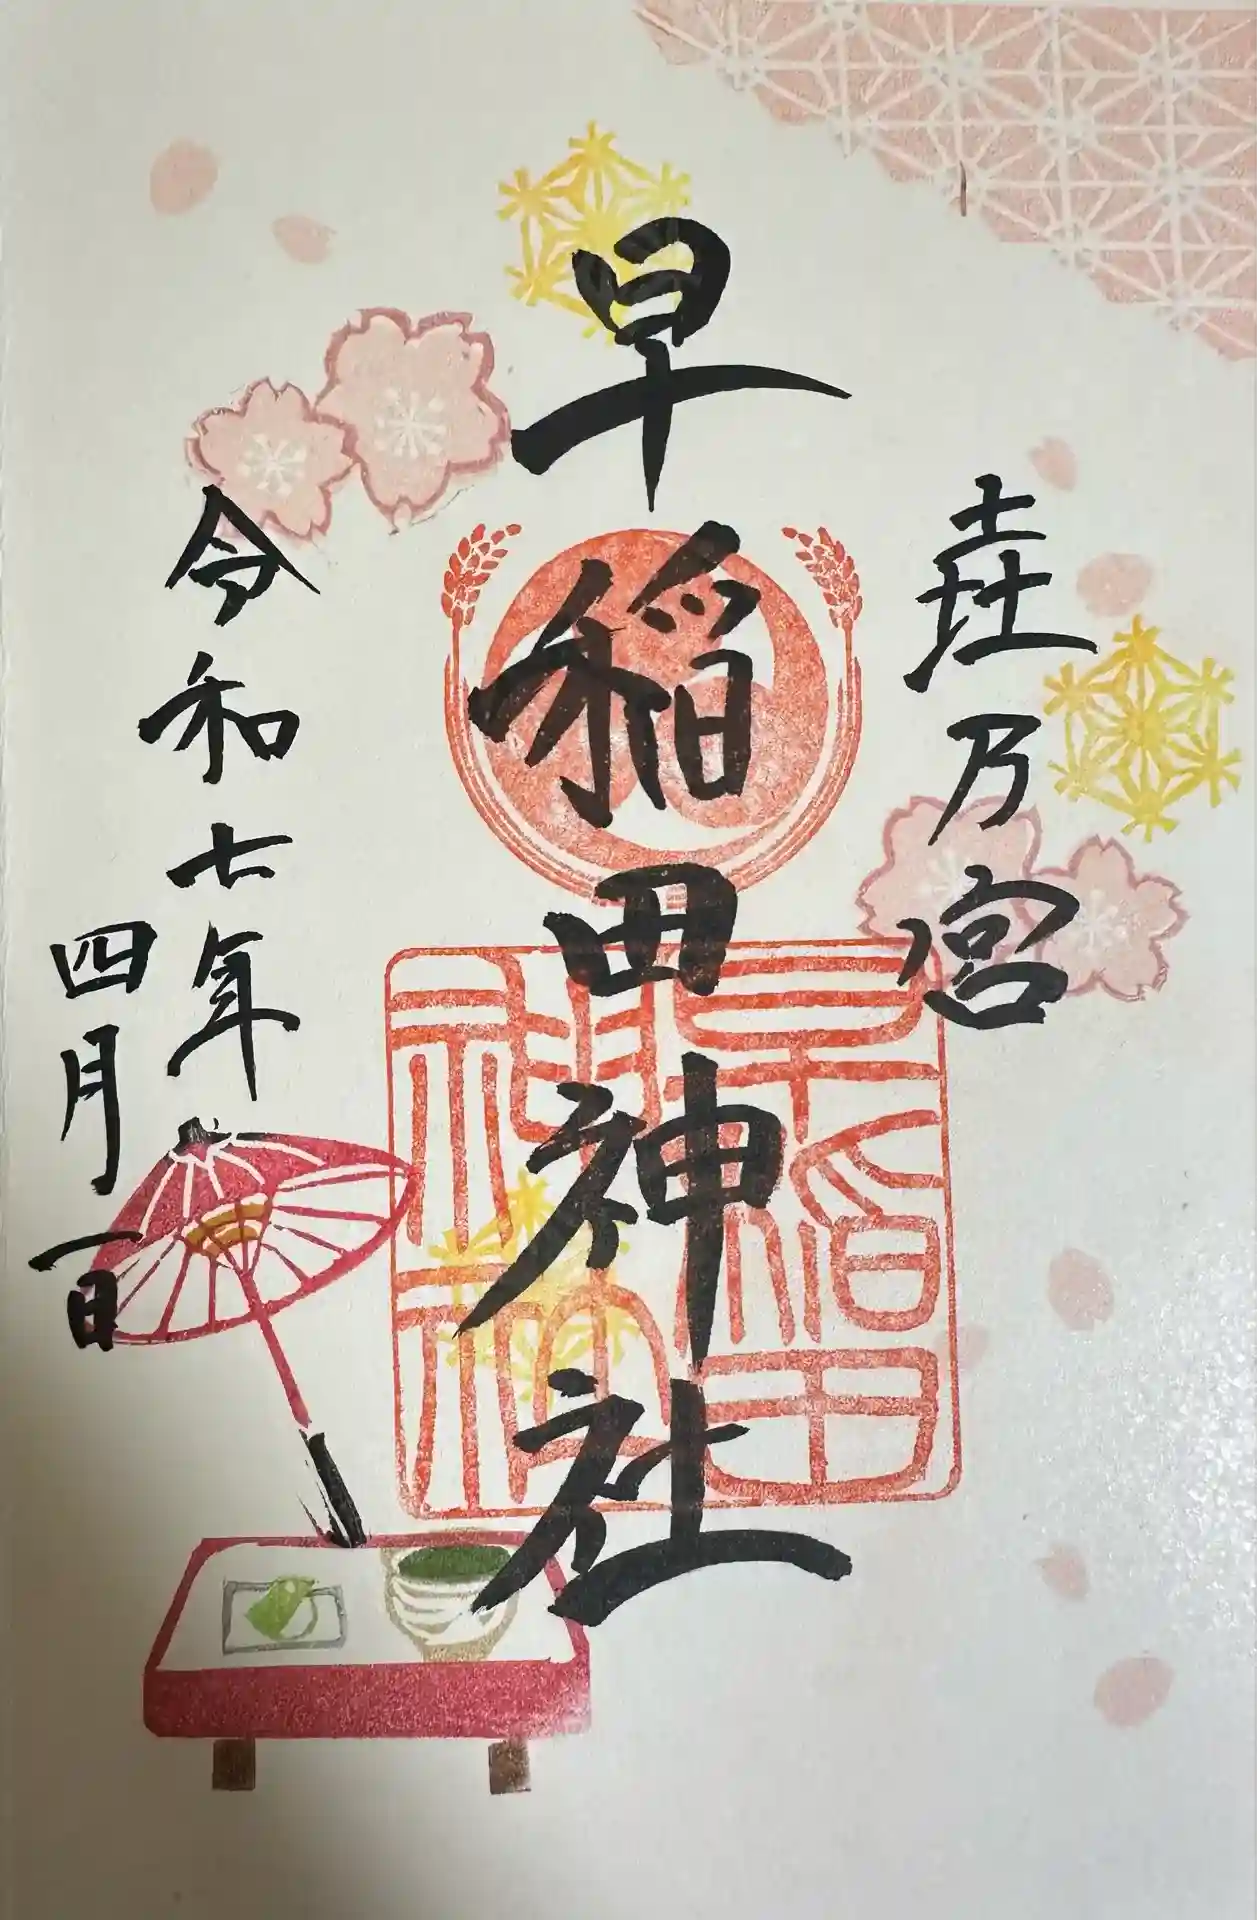 垚乃宮
早稲田神社
令和七年
四月一日
早稲田
神社